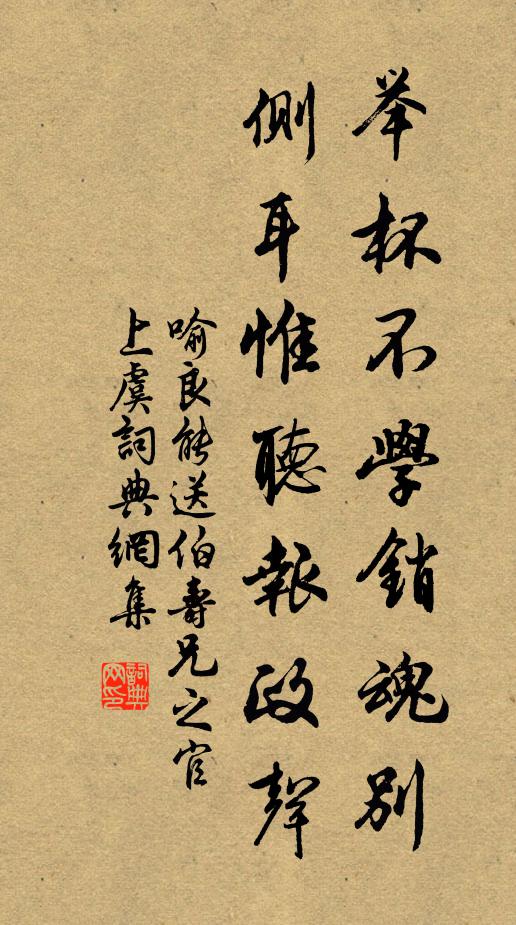 举杯不學銷魂别
側耳惟聽報政聲
喻良能送伯壽兄之官
上虞詞典網集
詞典网印